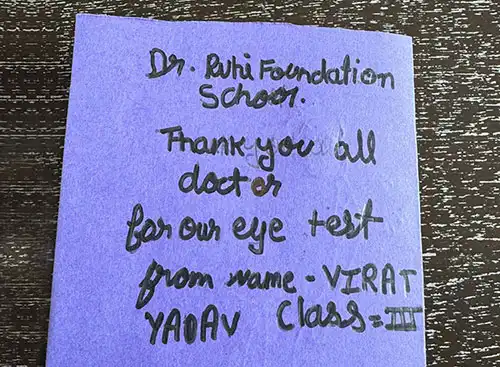 Dr. Ruhi Foundation
School.
Thank you all
docter
for our eye test
from name - VIRAT
YADAV Class = III